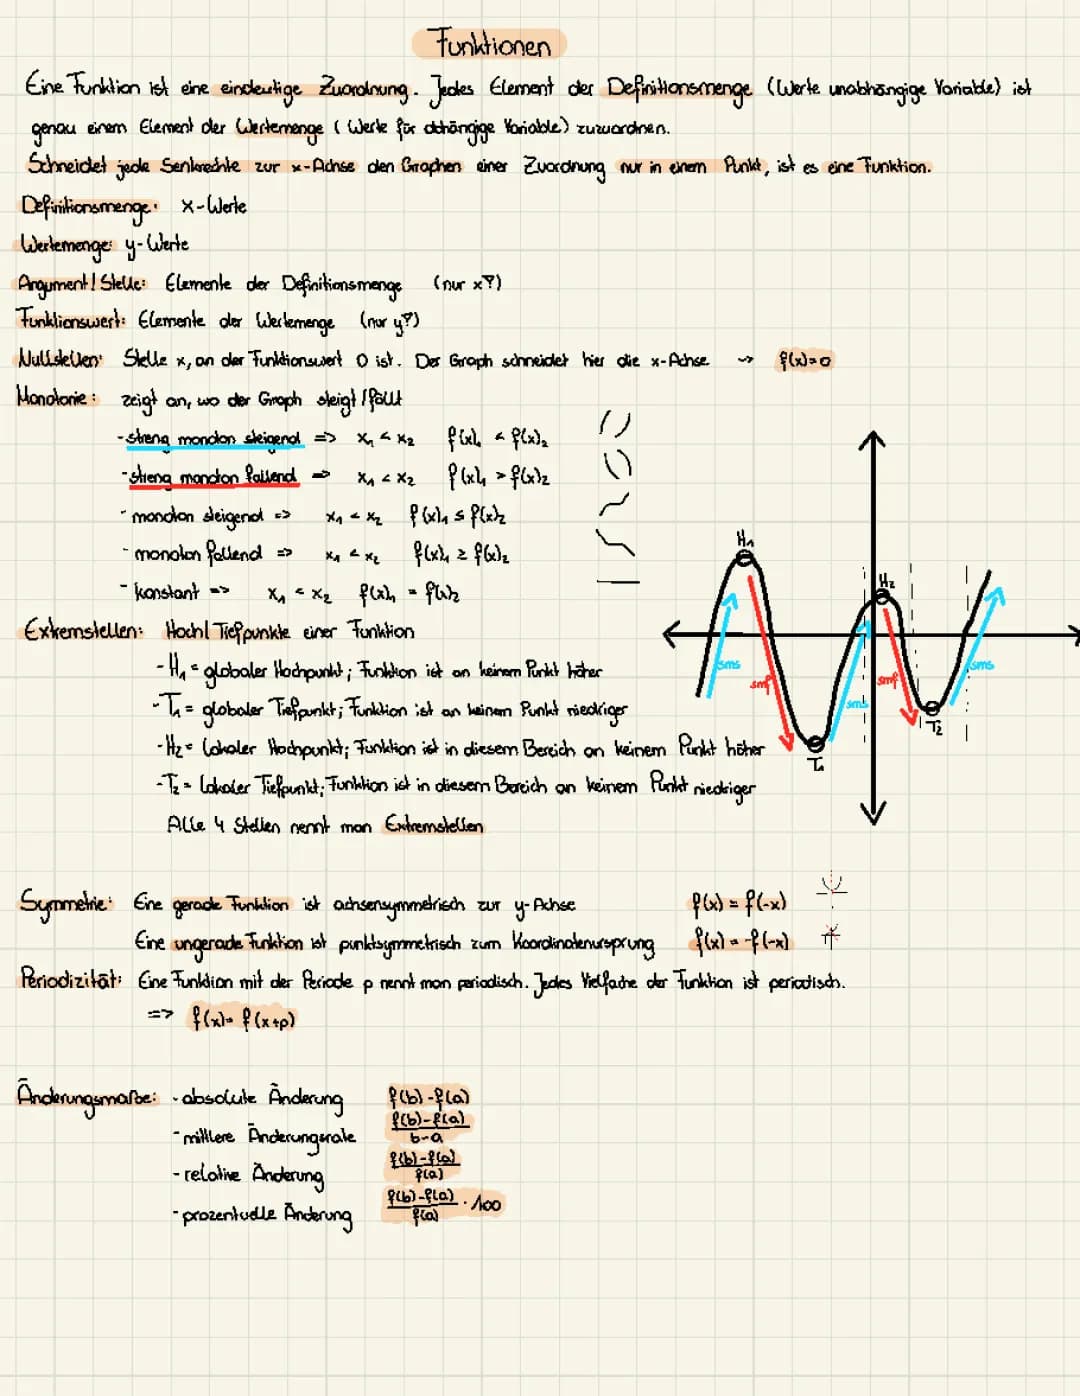 Funktionen
Eine Funktion ist eine eindeutige Zuordnung. Jedes Element der Definitionsmenge (Werte unabhängige Variable) ist
genau einem Element der Wertemenge (Werte für abhängige Variable) zuzuordnen.
Schneidet jede Senkrechte zur x-Achse den Graphen einer Zuordnung nur in einem Punkt, ist es eine Funktion.
Definitionsmenge: x-Werte
Wertemenge: y-Werte
Argument/Stelle: Elemente der Definitionsmenge (nur x?)
Funktionswert: Elemente der Wertemenge (nur y?)
Nullstellen: Stelle x, an der Funktionswert 0 ist. Der Graph schneidet hier die x-Achse ~> f(x)=0
Monotonie: zeigt an, wo der Graph steigt/fällt
- streng monoton steigend => x₁ < x₂ f(x)₁ < f(x)₂
- streng monoton fallend => x₁ < x₂ f(x)₁ > f(x)₂
- monoton steigend => x₁ < x₂ f(x)₁ ≤ f(x)₂
- monoton fallend => x₁ < x₂ f(x)₁ ≥ f(x)₂
- konstant => x₁ < x₂ f(x)₁ = f(x)₂
H₁
H₂
sms
smf
sms
smf
sms
T₁
T₂
Extremstellen: Hoch/Tiefpunkte einer Funktion
- H₁ = globaler Hochpunkt; Funktion ist an keinem Punkt höher
- T₁ = globaler Tiefpunkt; Funktion ist an keinem Punkt niedriger
- H₂ = lokaler Hochpunkt; Funktion ist in diesem Bereich an keinem Punkt höher
- T₂ = lokaler Tiefpunkt; Funktion ist in diesem Bereich an keinem Punkt niedriger
Alle 4 Stellen nennt man Extremstellen
Symmetrie: Eine gerade Funktion ist achsensymmetrisch zur y-Achse f(x) = f(-x)
Eine ungerade Funktion ist punktsymmetrisch zum Koordinatenursprung f(x) = -f(-x)
Periodizität: Eine Funktion mit der Periode p nennt man periodisch. Jedes Vielfache der Funktion ist periodisch.
=> f(x) = f(x+p)
Änderungsmaße: - absolute Änderung f(b)-f(a)
- mittlere Änderungsrate f(b)-f(a) / b-a
- relative Änderung f(b)-f(a) / f(a)
- prozentuelle Änderung f(b)-f(a) / f(a) · 100